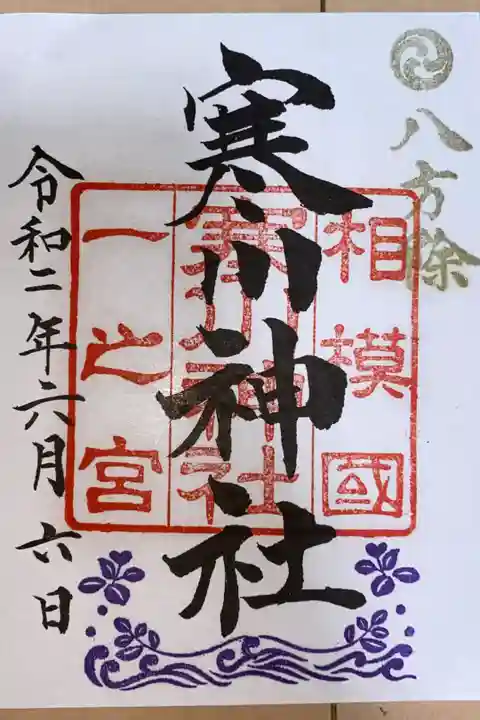 八方除
相模國
寒川神社
寒川神社
一之宮
令和二年六月六日